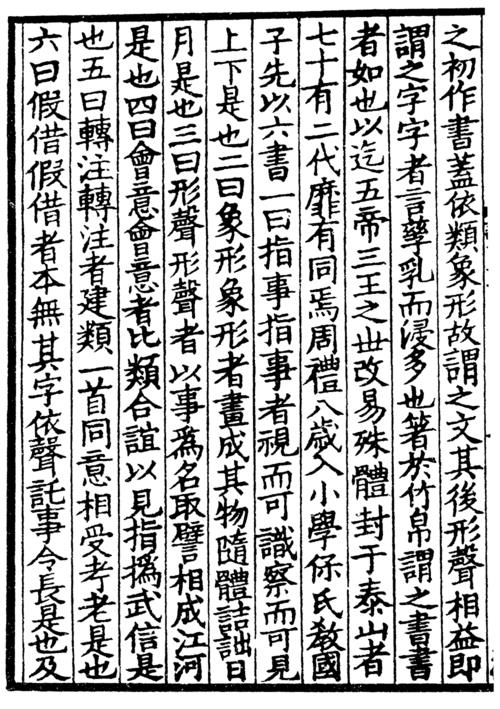 之初作書蓋依類象形故謂之文其後形聲相益即
謂之字字者言孳乳而浸多也著於竹帛謂之書書
者如也以迄五帝三王之世改易殊體封于泰山者
七十有二代靡有同焉周禮八歲入小學保氏教國
子先以六書一曰指事指事者視而可識察而可見
上下是也二曰象形象形者畫成其物隨體詰詘日
月是也三曰形聲形聲者以事爲名取譬相成江河
是也四曰會意會意者比類合誼以見指撝武信是
也五曰轉注轉注者建類一首同意相受考老是也
六曰假借假借者本無其字依聲託事令長是也及